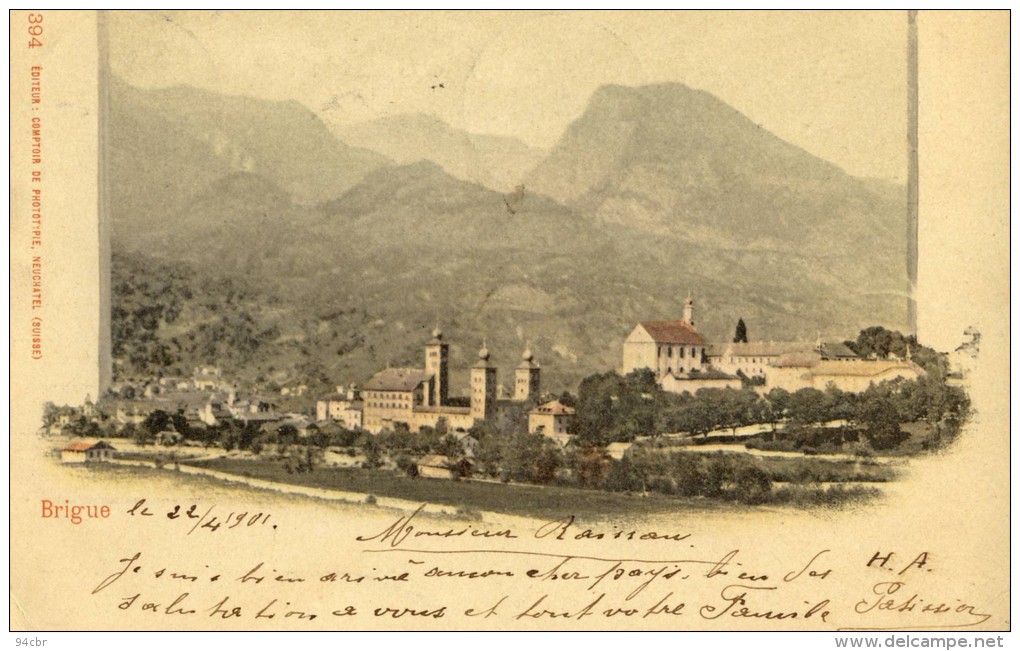 394 ÉDITEUR : COMPTOIR DE PHOTOTYPIE, NEUCHATEL (SUISSE)
Brigue le 22/4 1901.
Monsieur Raissan.
Je suis bien arivé amon cher pays. bien des
salutation a vous et tout votre Famile
H. A.
Patissier
94cbr
www.delcampe.net